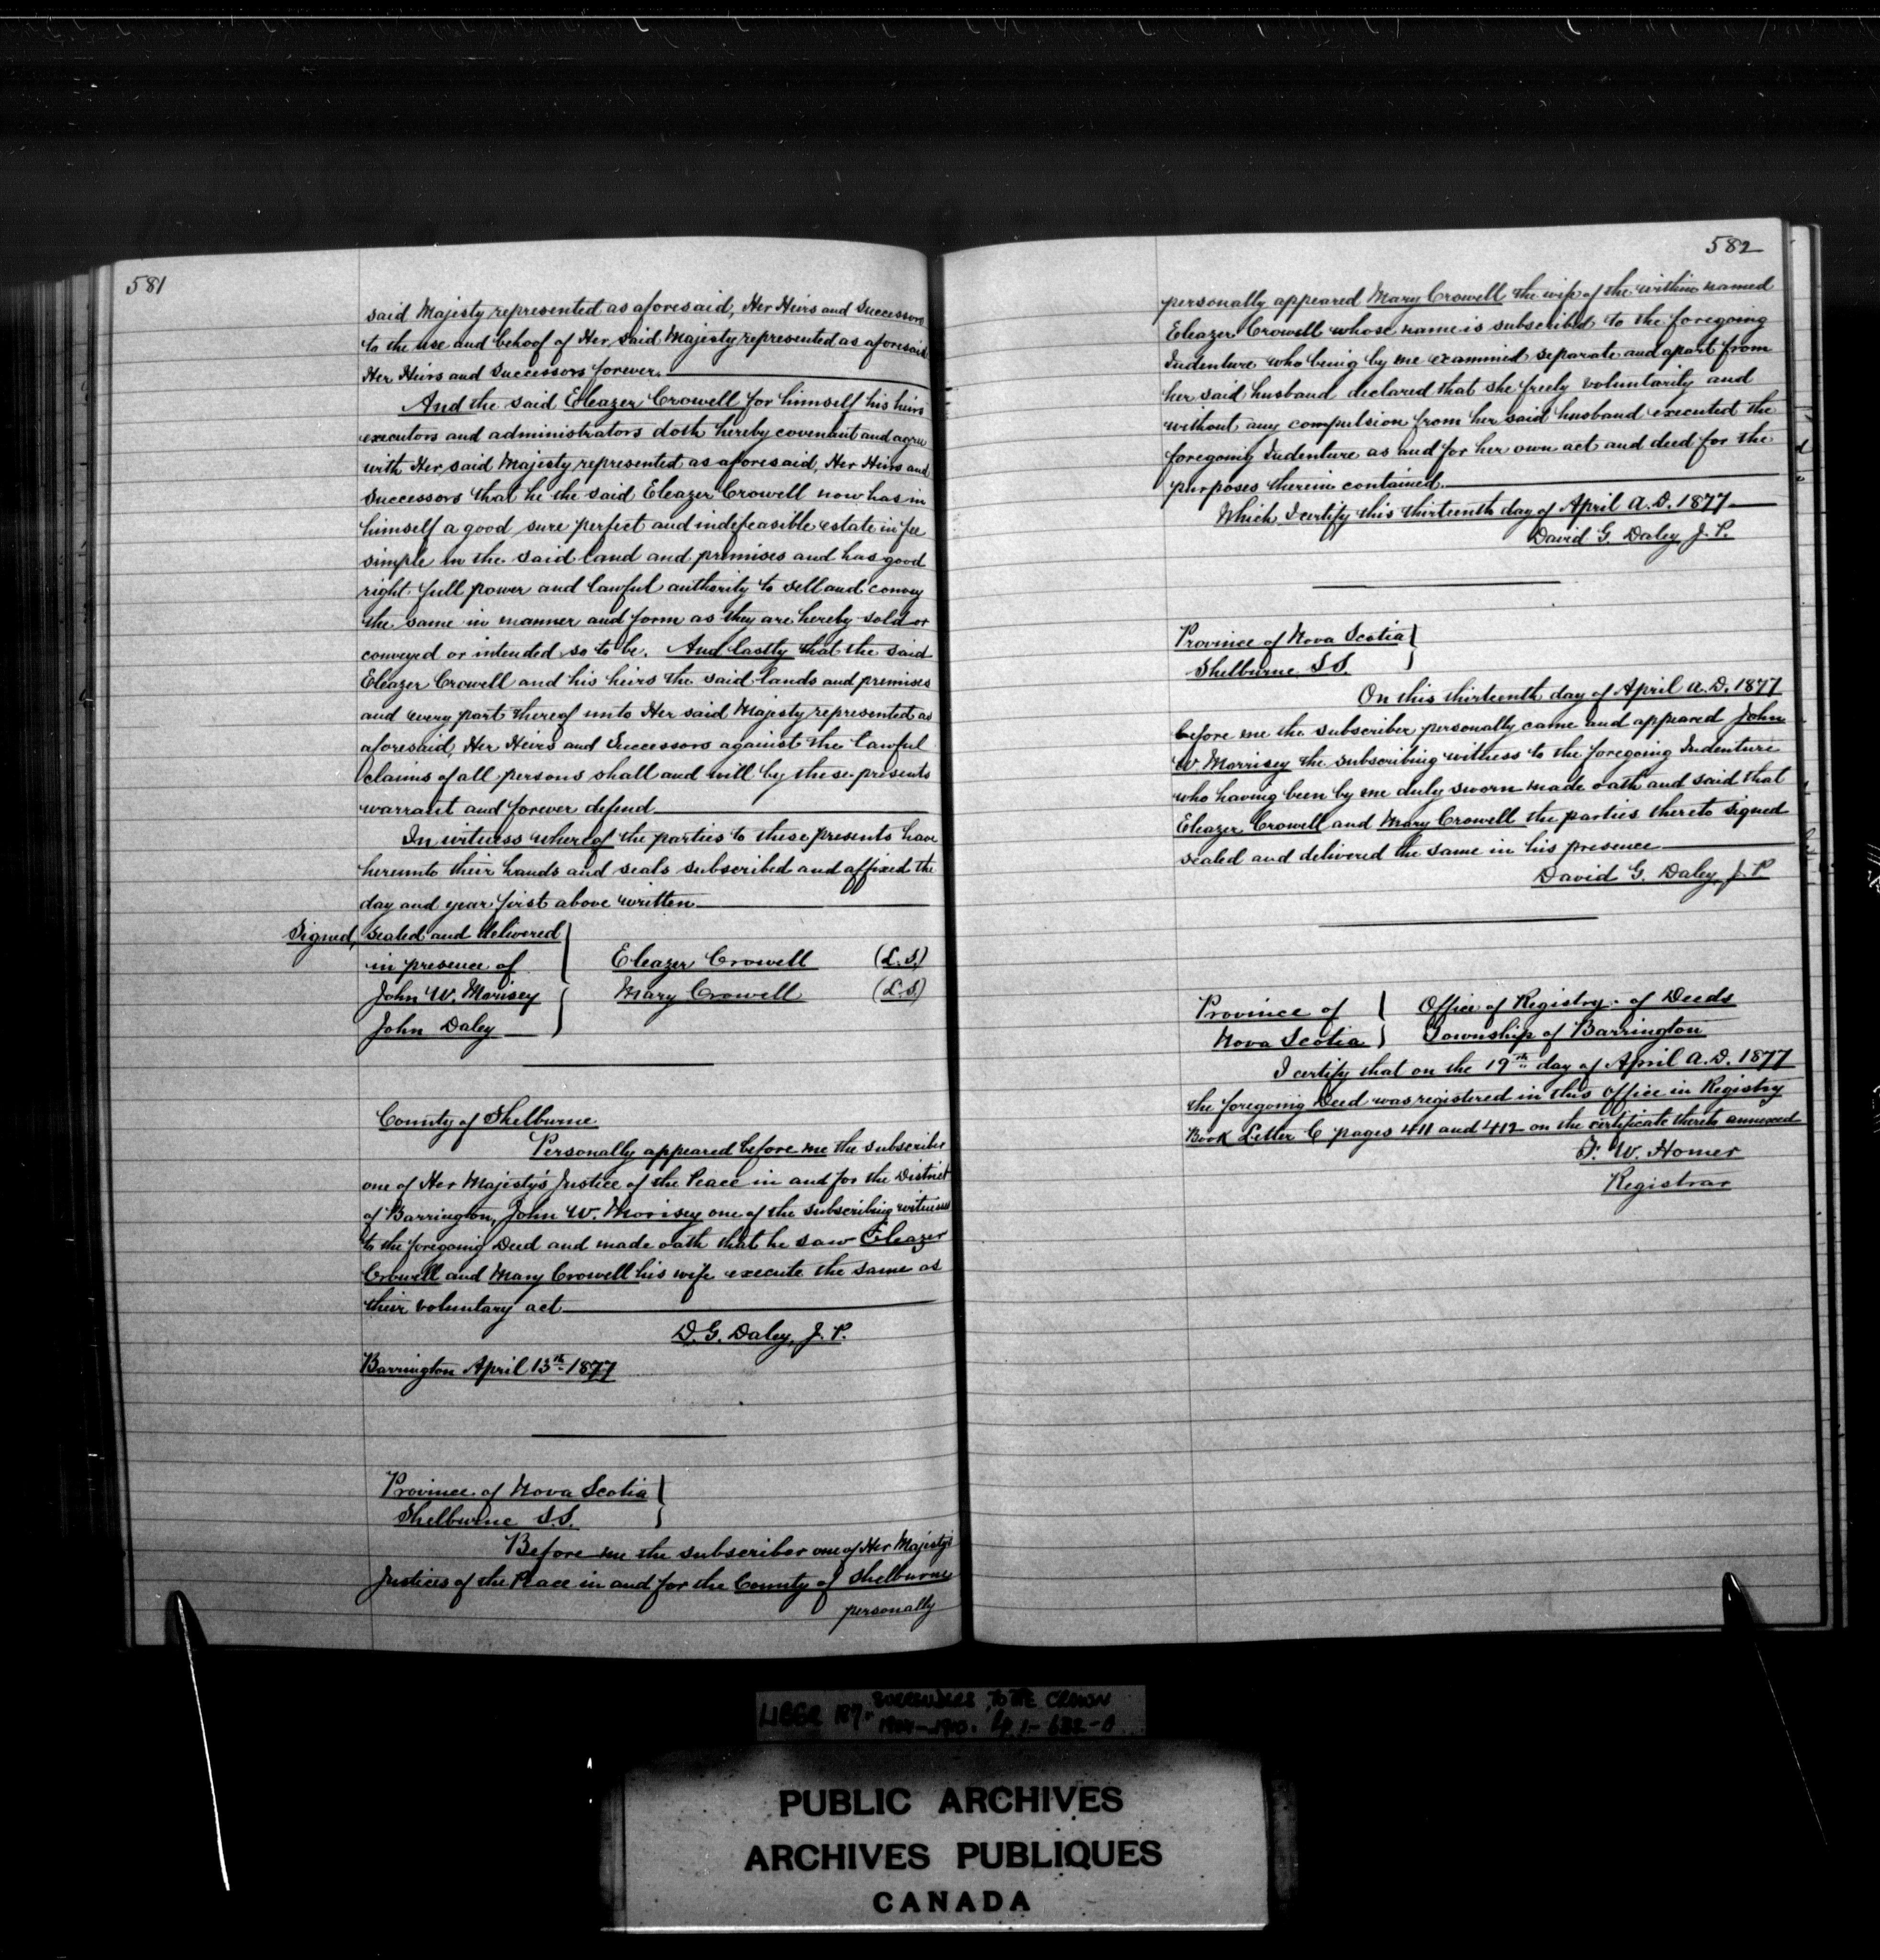 581
said Majesty represented as aforesaid, Her Heirs and Successors
to the use and behoof of Her said Majesty represented as aforesaid
Her Heirs and Successors forever.
And the said Eleazer Crowell for himself his heirs
executors and administrators doth hereby covenant and agree
with Her said Majesty represented as aforesaid, Her Heirs and
Successors that he the said Eleazer Crowell now has in
himself a good sure perfect and indefeasible estate in fee
simple in the said land and premises and has good
right full power and lawful authority to sell and convey
the same in manner and form as they are hereby sold or
conveyed or intended so to be. And lastly that the said
Eleazer Crowell and his heirs the said lands and premises
and every part thereof unto Her said Majesty represented as
aforesaid, Her Heirs and Successors against the lawful
claims of all persons shall and will by these presents
warrant and forever defend
In witness whereof the parties to these presents have
hereunto their hands and seals subscribed and affixed the
day and year first above written
Signed, sealed and delivered
in presence of Eleazer Crowell (L.S.)
John W. Morisey Mary Crowell (L.S)
John Daley
County of Shelburne
Personally appeared before me the subscriber
one of Her Majesty's Justice of the Peace in and for the District
of Barrington, John W. Morisey one of the subscribing witnesses
to the foregoing Deed and made oath that he saw Eleazer
Crowell and Mary Crowell his wife execute the same as
their voluntary act
D. G. Daley, J. P.
Barrington April 13th 1877
Province of Nova Scotia
Shelburne S.S.
Before me the subscriber one of Her Majesty's
Justices of the Peace in and for the County of Shelburne
personally
582
personally appeared Mary Crowell the wife of the within named
Eleazer Crowell whose name is subscribed to the foregoing
Indenture who being by me examined separate and apart from
her said husband declared that she freely voluntarily and
without any compulsion from her said husband executed the
foregoing Indenture as and for her own act and deed for the
purposes therein contained
Which I certify this thirteenth day of April A.D. 1877
David G. Daley J. P.
Province of Nova Scotia
Shelburne S.S.
On this thirteenth day of April A.D. 1877
before me the subscriber personally came and appeared John
W. Morrisey the subscribing witness to the foregoing Indenture
who having been by me duly sworn made oath and said that
Eleazer Crowell and Mary Crowell the parties thereto signed
sealed and delivered the same in his presence
David G. Daley, J. P
Province of Office of Registry of Deeds
Nova Scotia Township of Barrington
I certify that on the 19th day of April A.D. 1877
the foregoing Deed was registered in this Office in Registry
Book Letter C pages 411 and 412 on the certificate thereto annexed
T. W. Homer
Registrar
LIBER SURRENDERS TO THE CROWN
PUBLIC ARCHIVES
ARCHIVES PUBLIQUES
CANADA